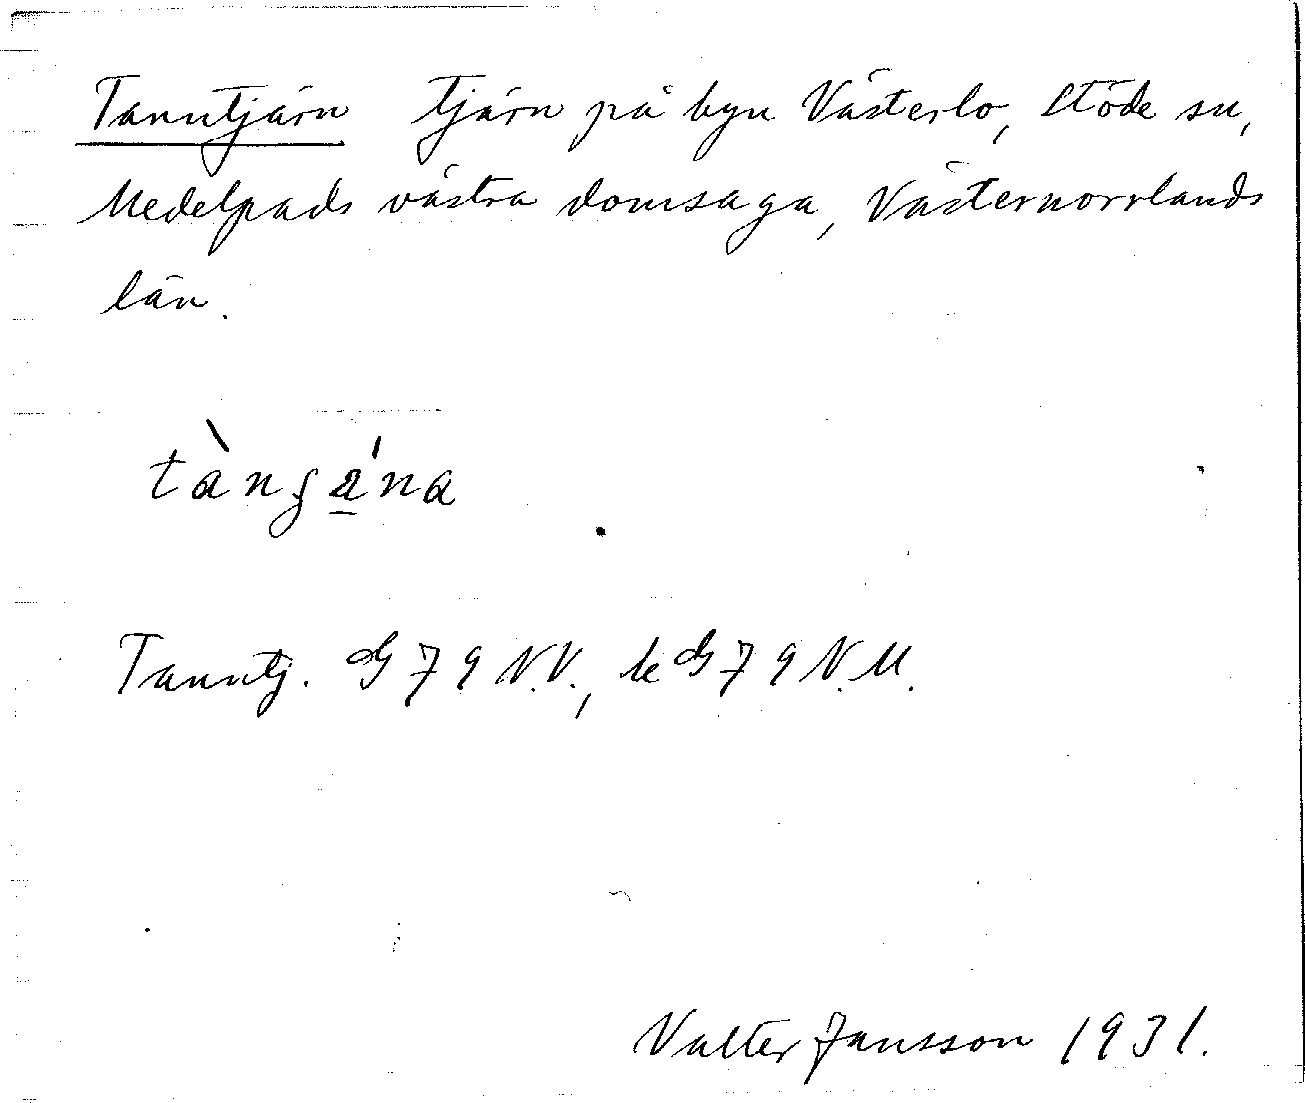 Tanntjärn tjärn på byn Västerlo, Stöde sn,
Medelpads västra domsaga, Västernorrlands
län.
tànʂá̠na
Tanntj. G 79 N.V., ke G 79 N.M.
Valter Jansson 1931.